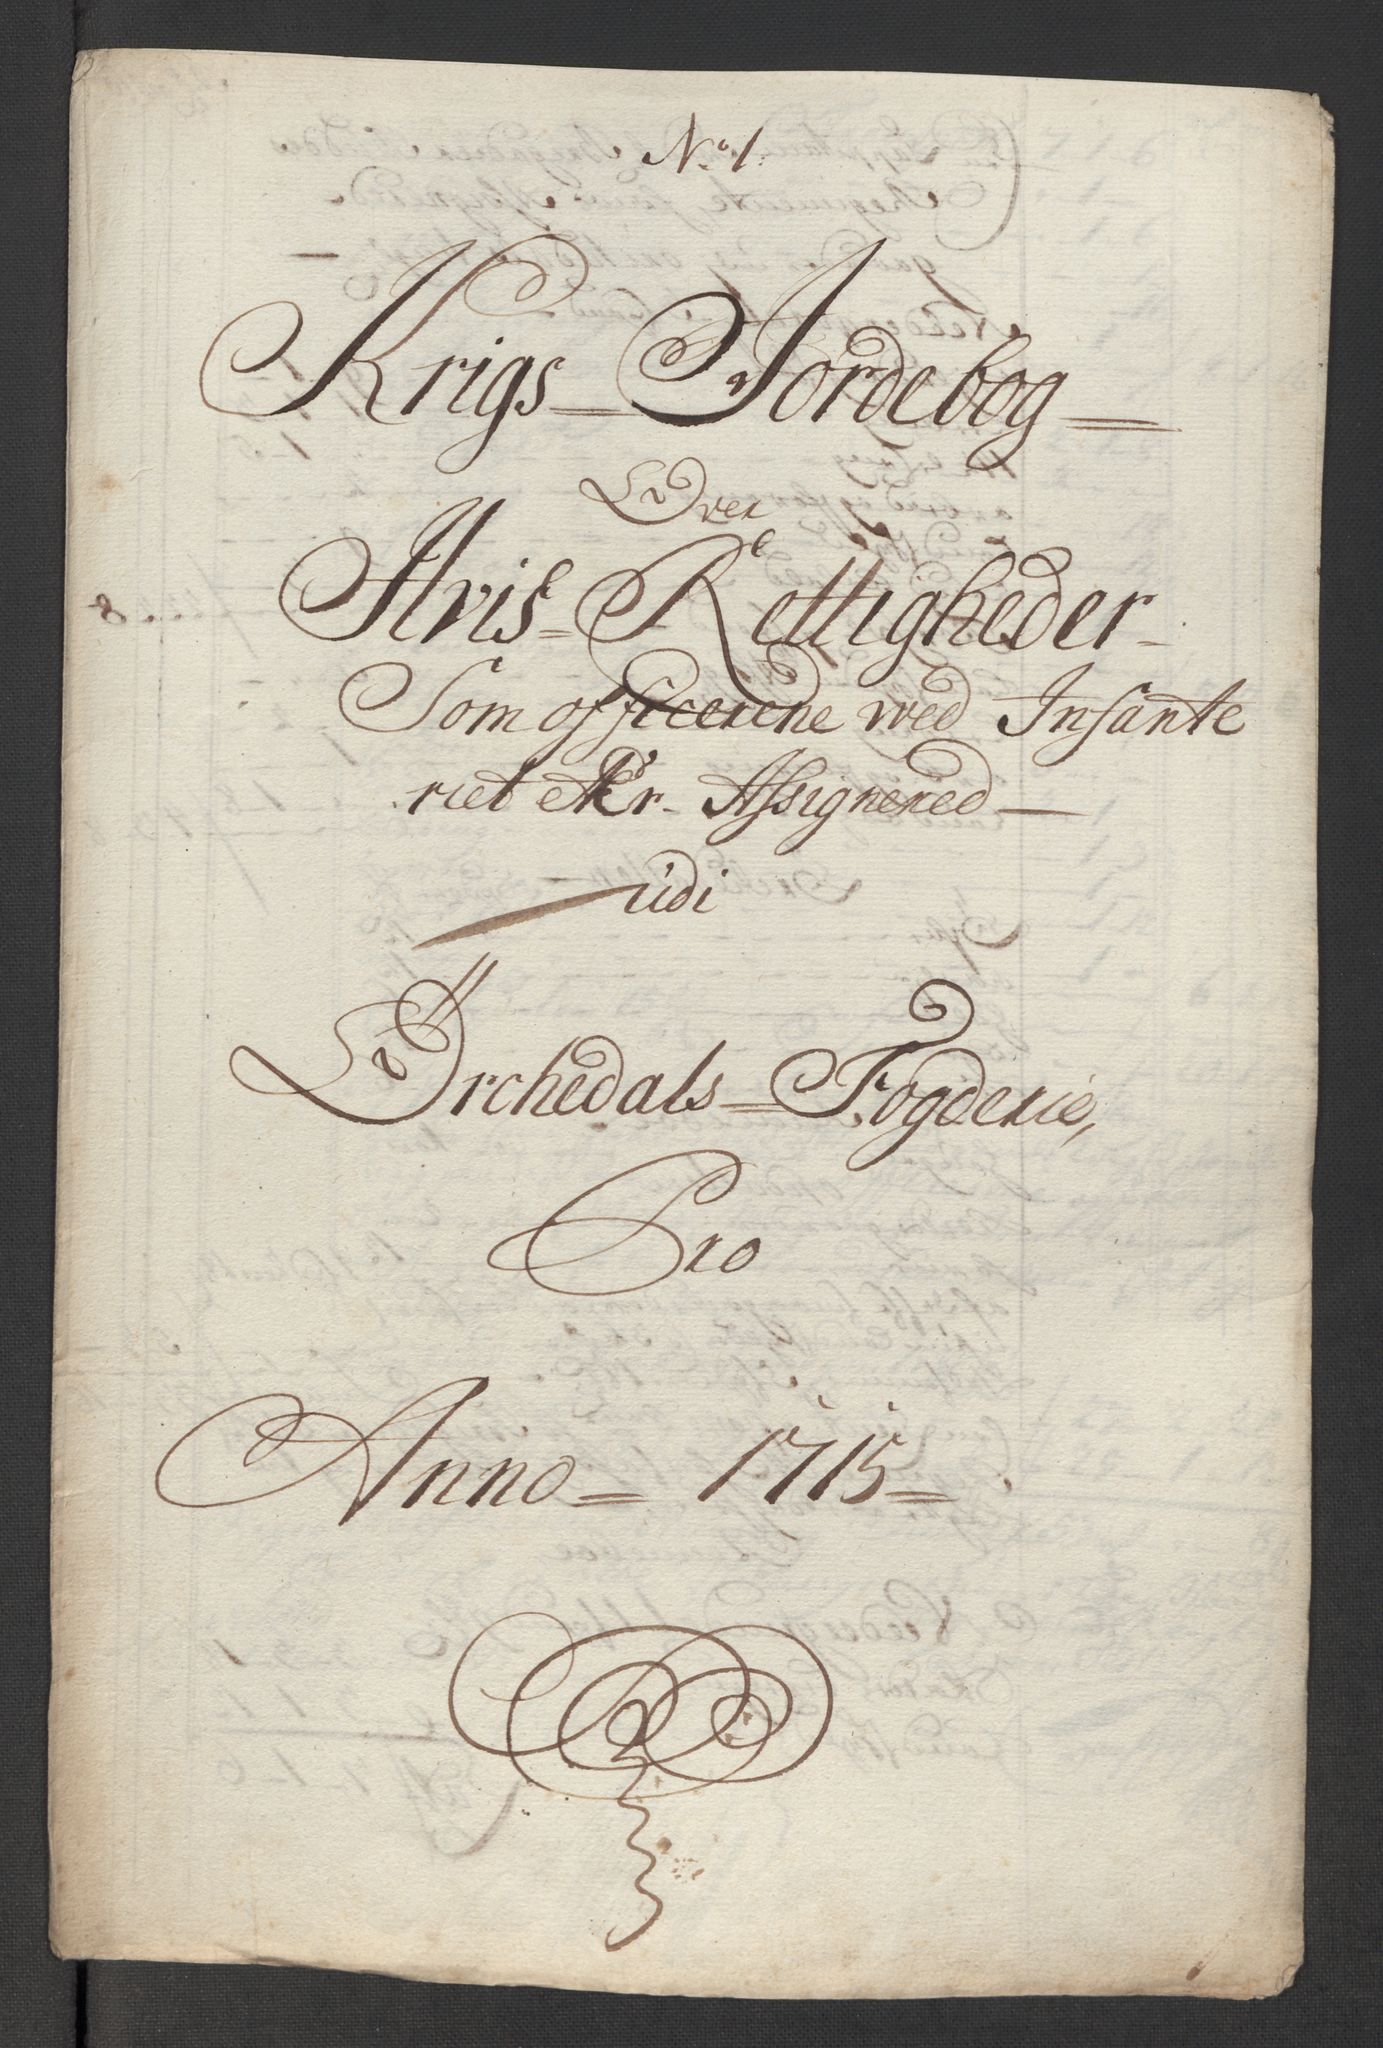 No 1.
Krigs Jordebog
Over
Hvis Rettigheder
Som officererne wed Infante
riet Er Assignered
udi
Örchedals Fogderie,
Pro
Anno 1715